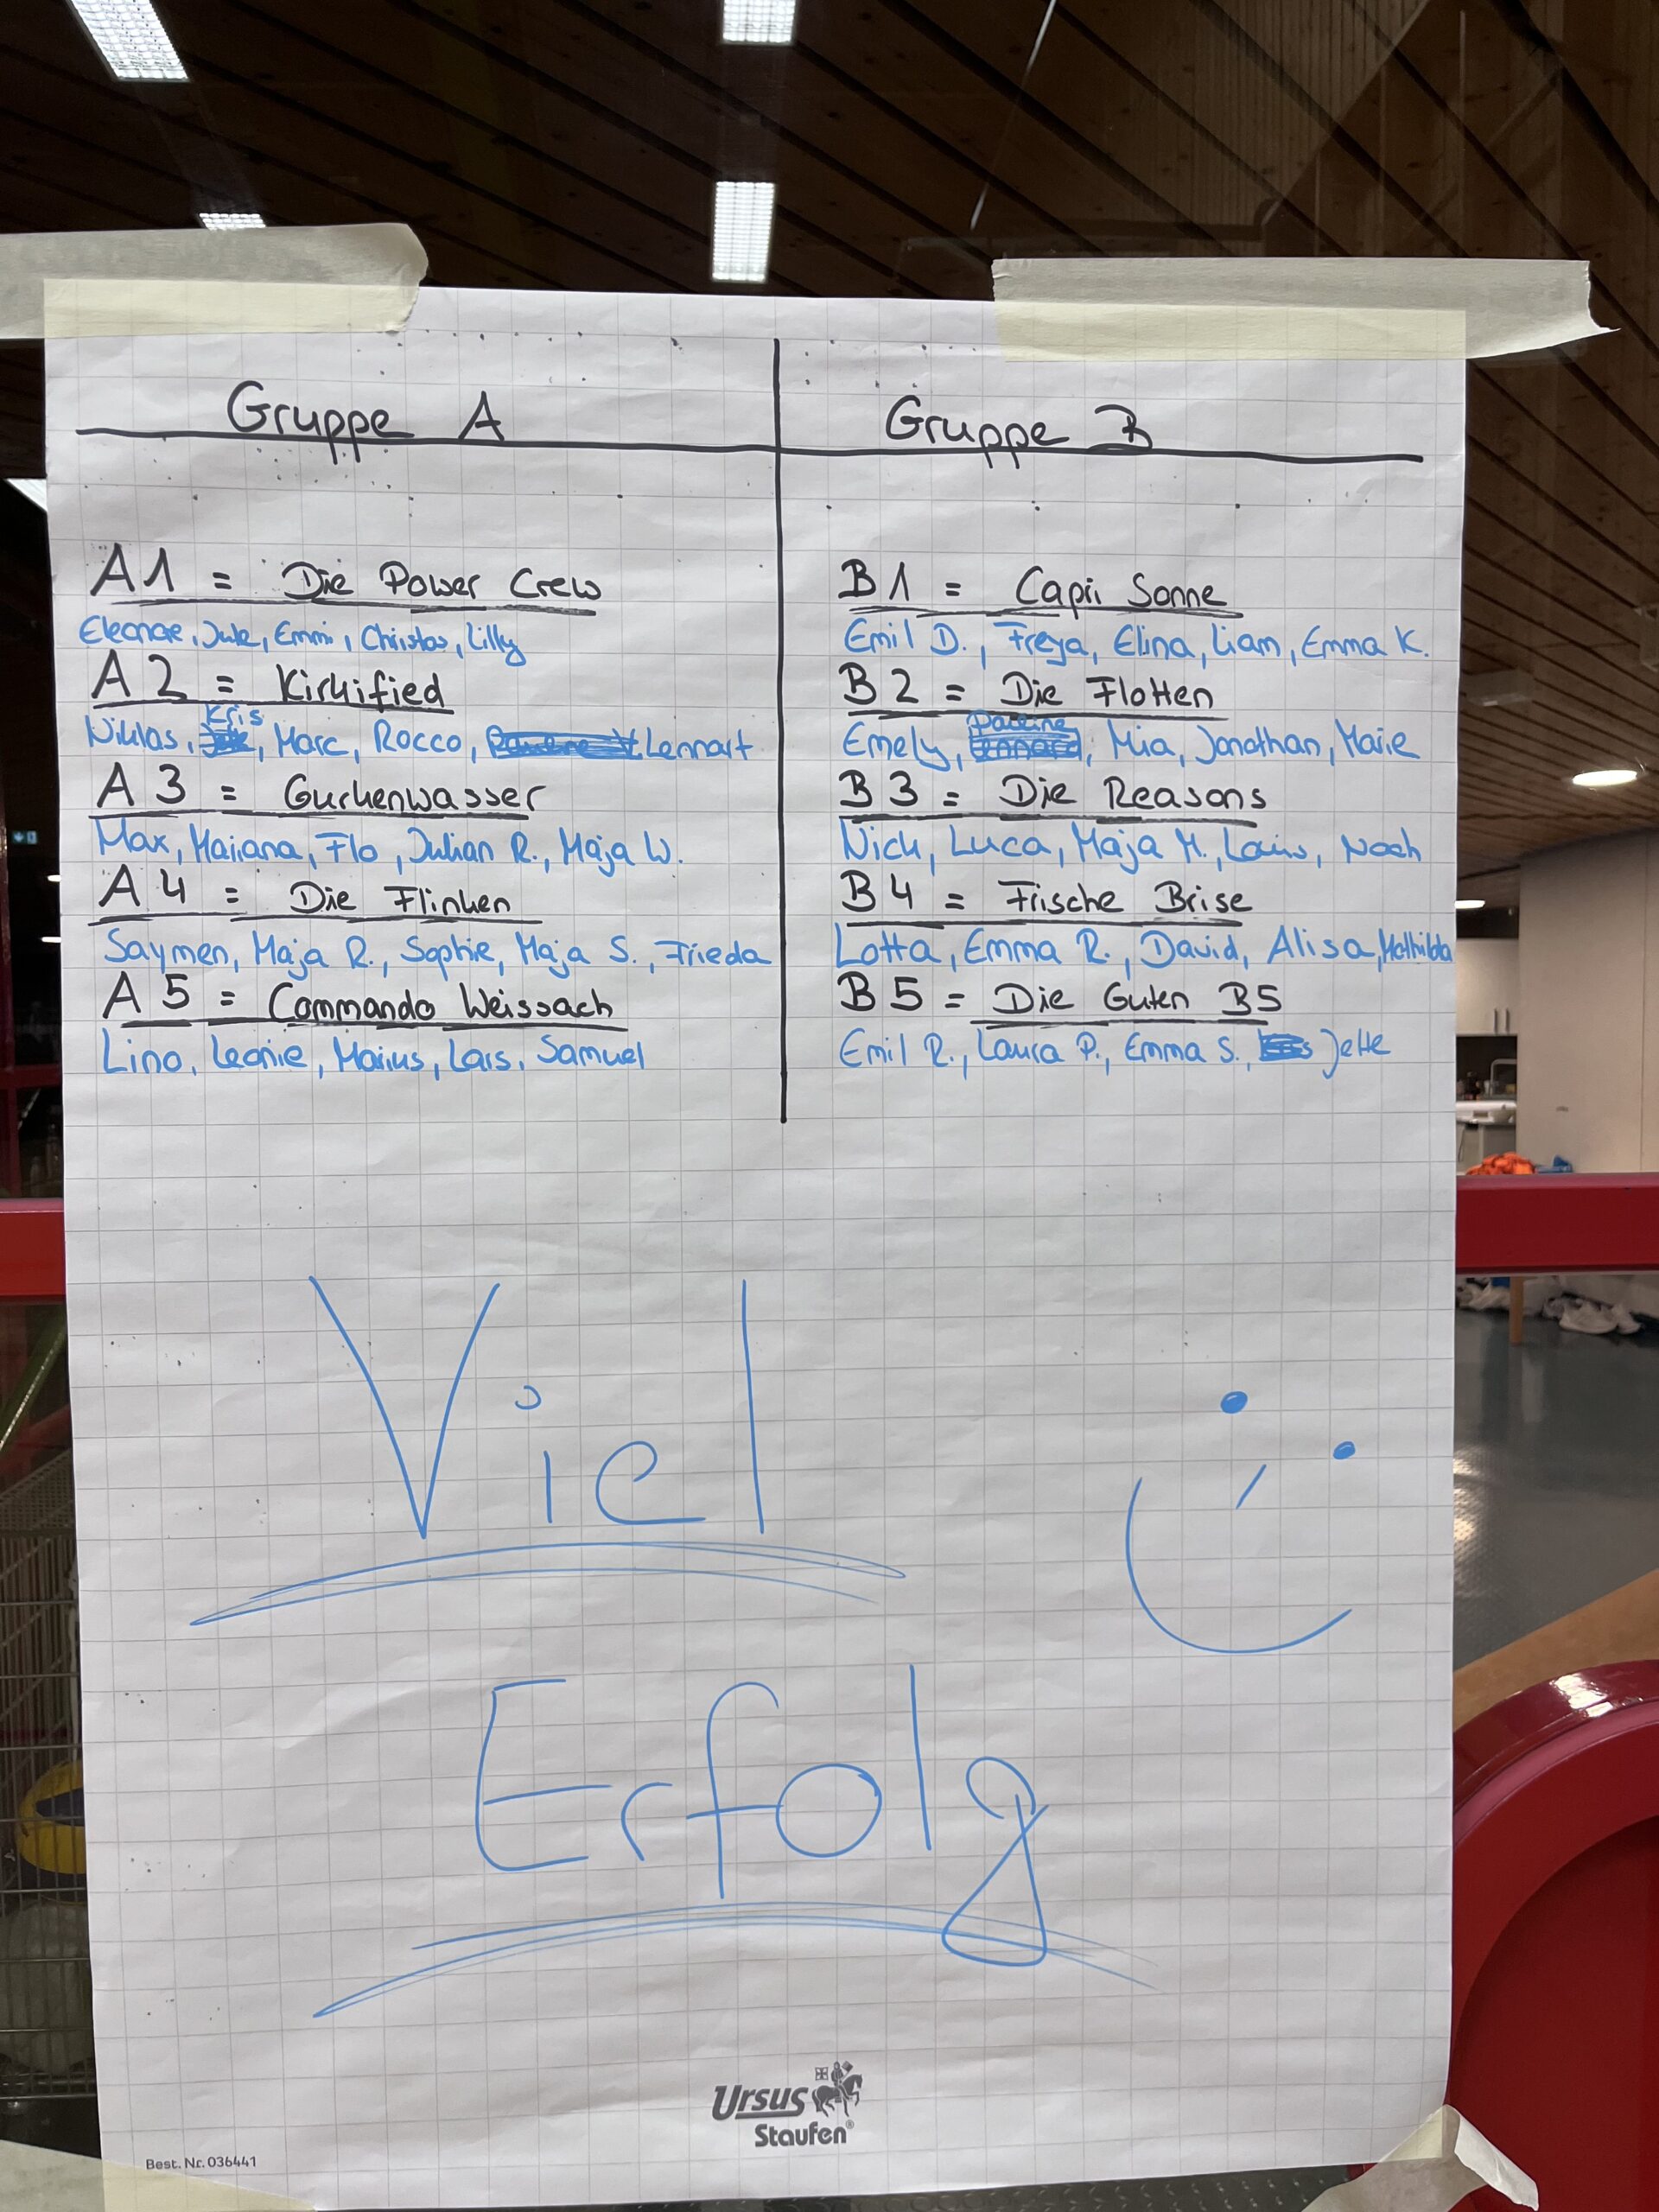 Gruppe A
A1 = Die Power Crew
Eleonore, Jule, Emmi, Christos, Lilly
A2 = Kirkified
Kris
Niklas, Marc, Rocco, Lennart
A3 = Gurkenwasser
Max, Mariana, Flo, Julian R., Maja W.
A4 = Die Flinken
Saymen, Maja R., Sophie, Maja S., Frieda
A5 = Commando Weissach
Lino, Leonie, Marius, Lars, Samuel
Gruppe B
B1 = Capri Sonne
Emil D., Freya, Elina, Liam, Emma K.
B2 = Die Flotten
Emely, Mia, Jonathan, Marie
B3 = Die Reasons
Nick, Luca, Maja M., Noah
B4 = Frische Brise
Lotta, Emma R., David, Alisa, Mathilda
B5 = Die Guten B5
Emil R., Laura P., Emma S., Jette
Viel
Erfolg
Ursus
Staufen®
Best. Nr. 036441